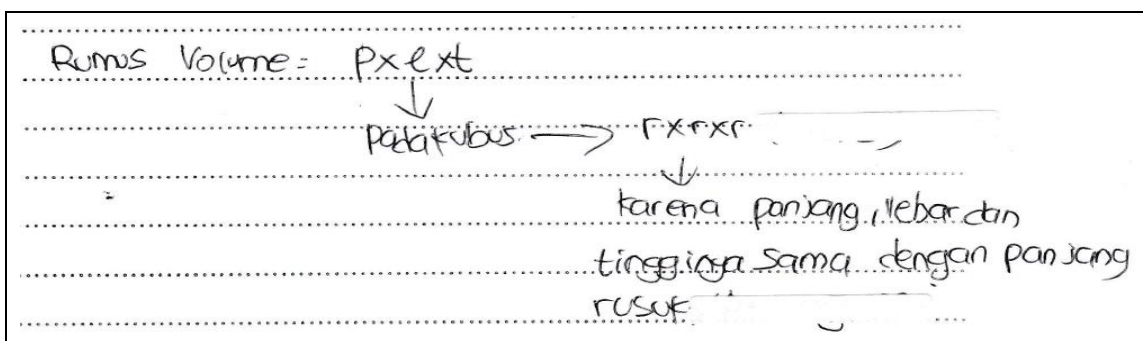 Rumus Volume = p x l x t
↓
Pada kubus → r x r x r
↓
karena panjang, lebar dan
tingginya sama dengan panjang
rusuk